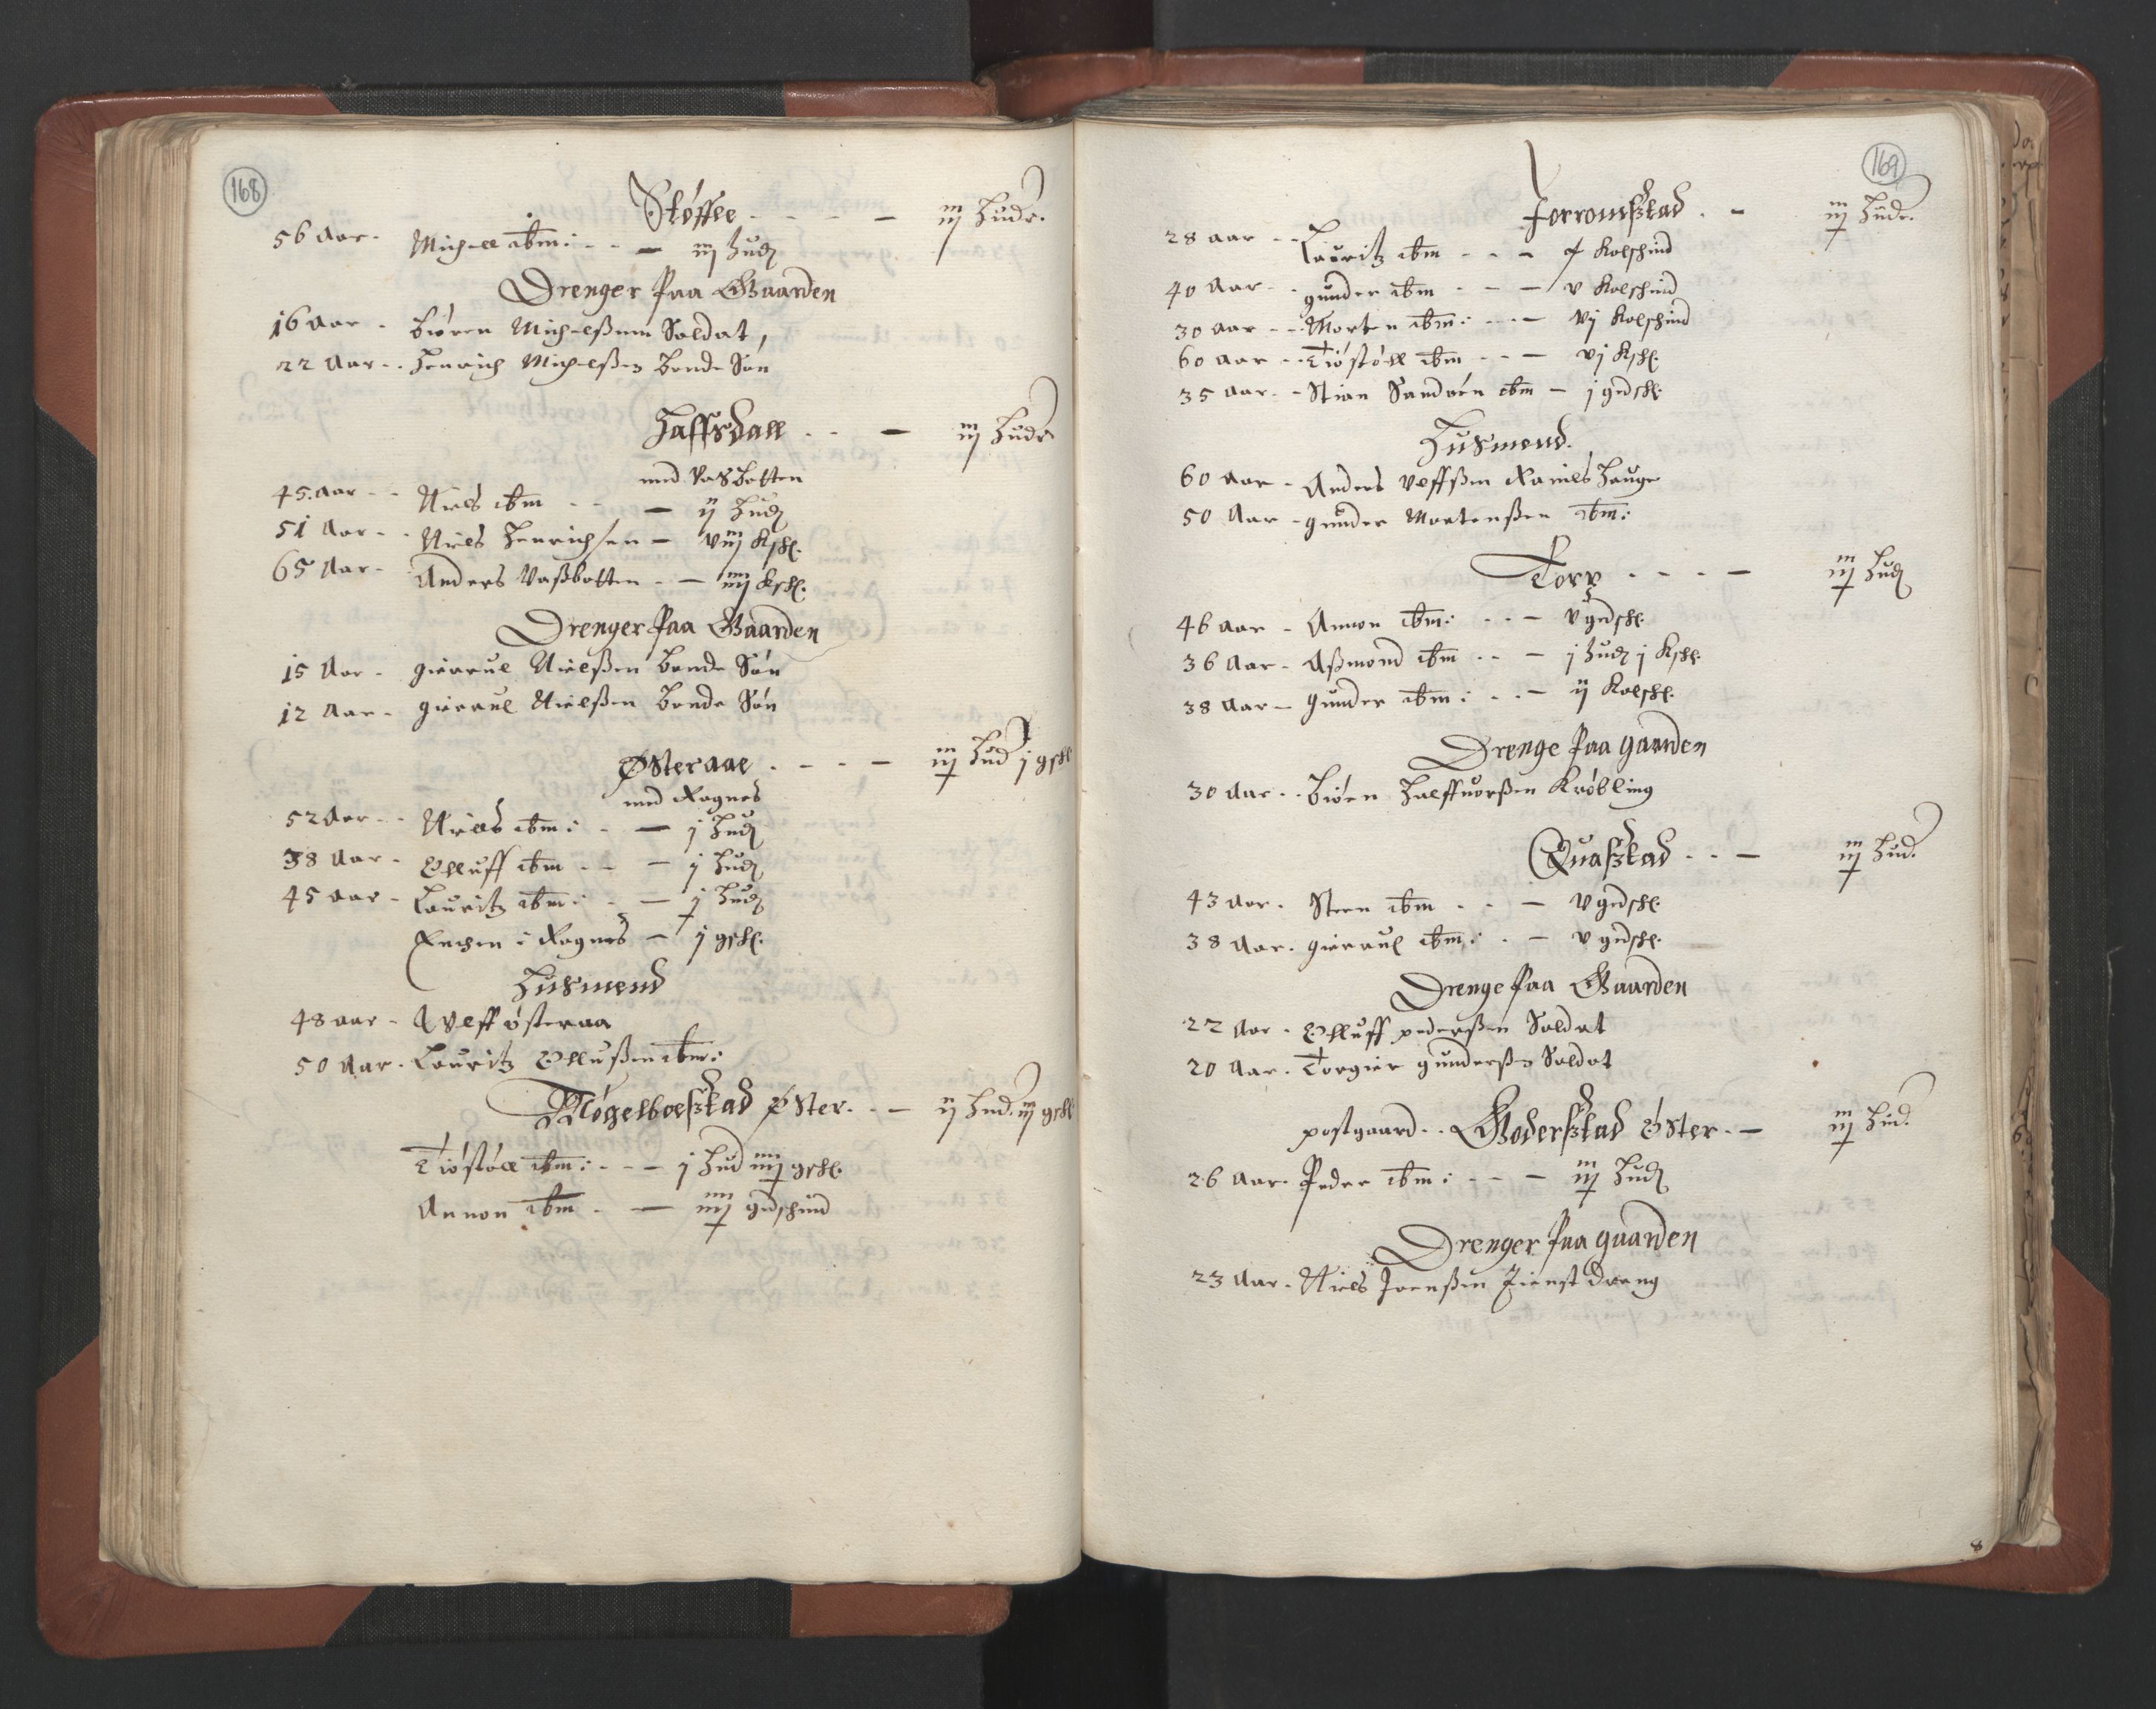 168
Støffle - - - - iij Hudr.
56 Aar. Michell ibm: - - - iij Hudr
Drenger Paa Gaarden
16 Aar - Biøren Michelßenn Soldat,
22 Aar - . Henrich Michelßen bonde Søn
Haffsdall . . - iij Hudr
med Vasbotten
45 aar - - Niels ibm - - - ij Hudr
51 Aar - . Niels Henrichsen - viij Kschl.
65 Aar - Anders Vaßbotten . - iiij Kschl.
Drenger Paa Gaarden
15 Aar - gieruul Nielßen bonde Søn
12 Aar - gieruul Nielßen bonde Søn
Østeraae . - - - iij Hud j gschl
med Rognes
52 Aar - - Niels ibm: - - j Hudr
38 Aar - Olluff ibm - - - j Hudr
45 aar - Lauritz ibm: - - j Hudr
Enchen i Rognes - j gschl.
Husmend
48 aar - Ulff østeraa
50 Aar . Lauritz Ollußen ibm:
Nøgelboeßtad Øster. - - ij Hud. iij gschl
Tiøstøll ibm: - - - j Hud iiij gschl.
Annon ibm . - iiij gedschind
169
Jorromßtad . - iij Hudr.
28 aar - - Lauritz ibm - - - j Kalschind
40 Aar - - gunder ibm - - - v Kalschind
30 aar - - Morten ibm: - - - vj Kalschind
60 aar - - Tiøstøll ibm - - - vj Kschl.
35 aar. - Stian Sandøen ibm - j gedschl.
Husmend.
60 aar - Anders Ulffßen Ranies Hauge
50 Aar - gunder Mortenßen ibm:
Torp . - - - iij Hudr
46 aar - Annon ibm: - - - v gedschl.
36 Aar - Aßmond ibm - - - j Hudr j Kschl.
38 Aar - Gunder ibm: - . - ij Kalschl.
Drenge Paa gaarden
30 Aar - . Biøen Halffuorßen Krøbling
Quaßtad - - - iij Hud.
43 Aar . Steen ibm . - - v gedschl.
38 Aar . gieruul ibm: . - v gedschl.
Drenge Paa Gaarden
22 Aar . Olluff pederßen Soldat
20 Aar . Torgier gunderßen Soldat
postgaard . . Goderßtad Øster . - iij Hud.
26 Aar . Peder ibm: - - - iij Hudr
Drenger Paa gaarden
23 Aar . Niels Joenßen tienst dreng